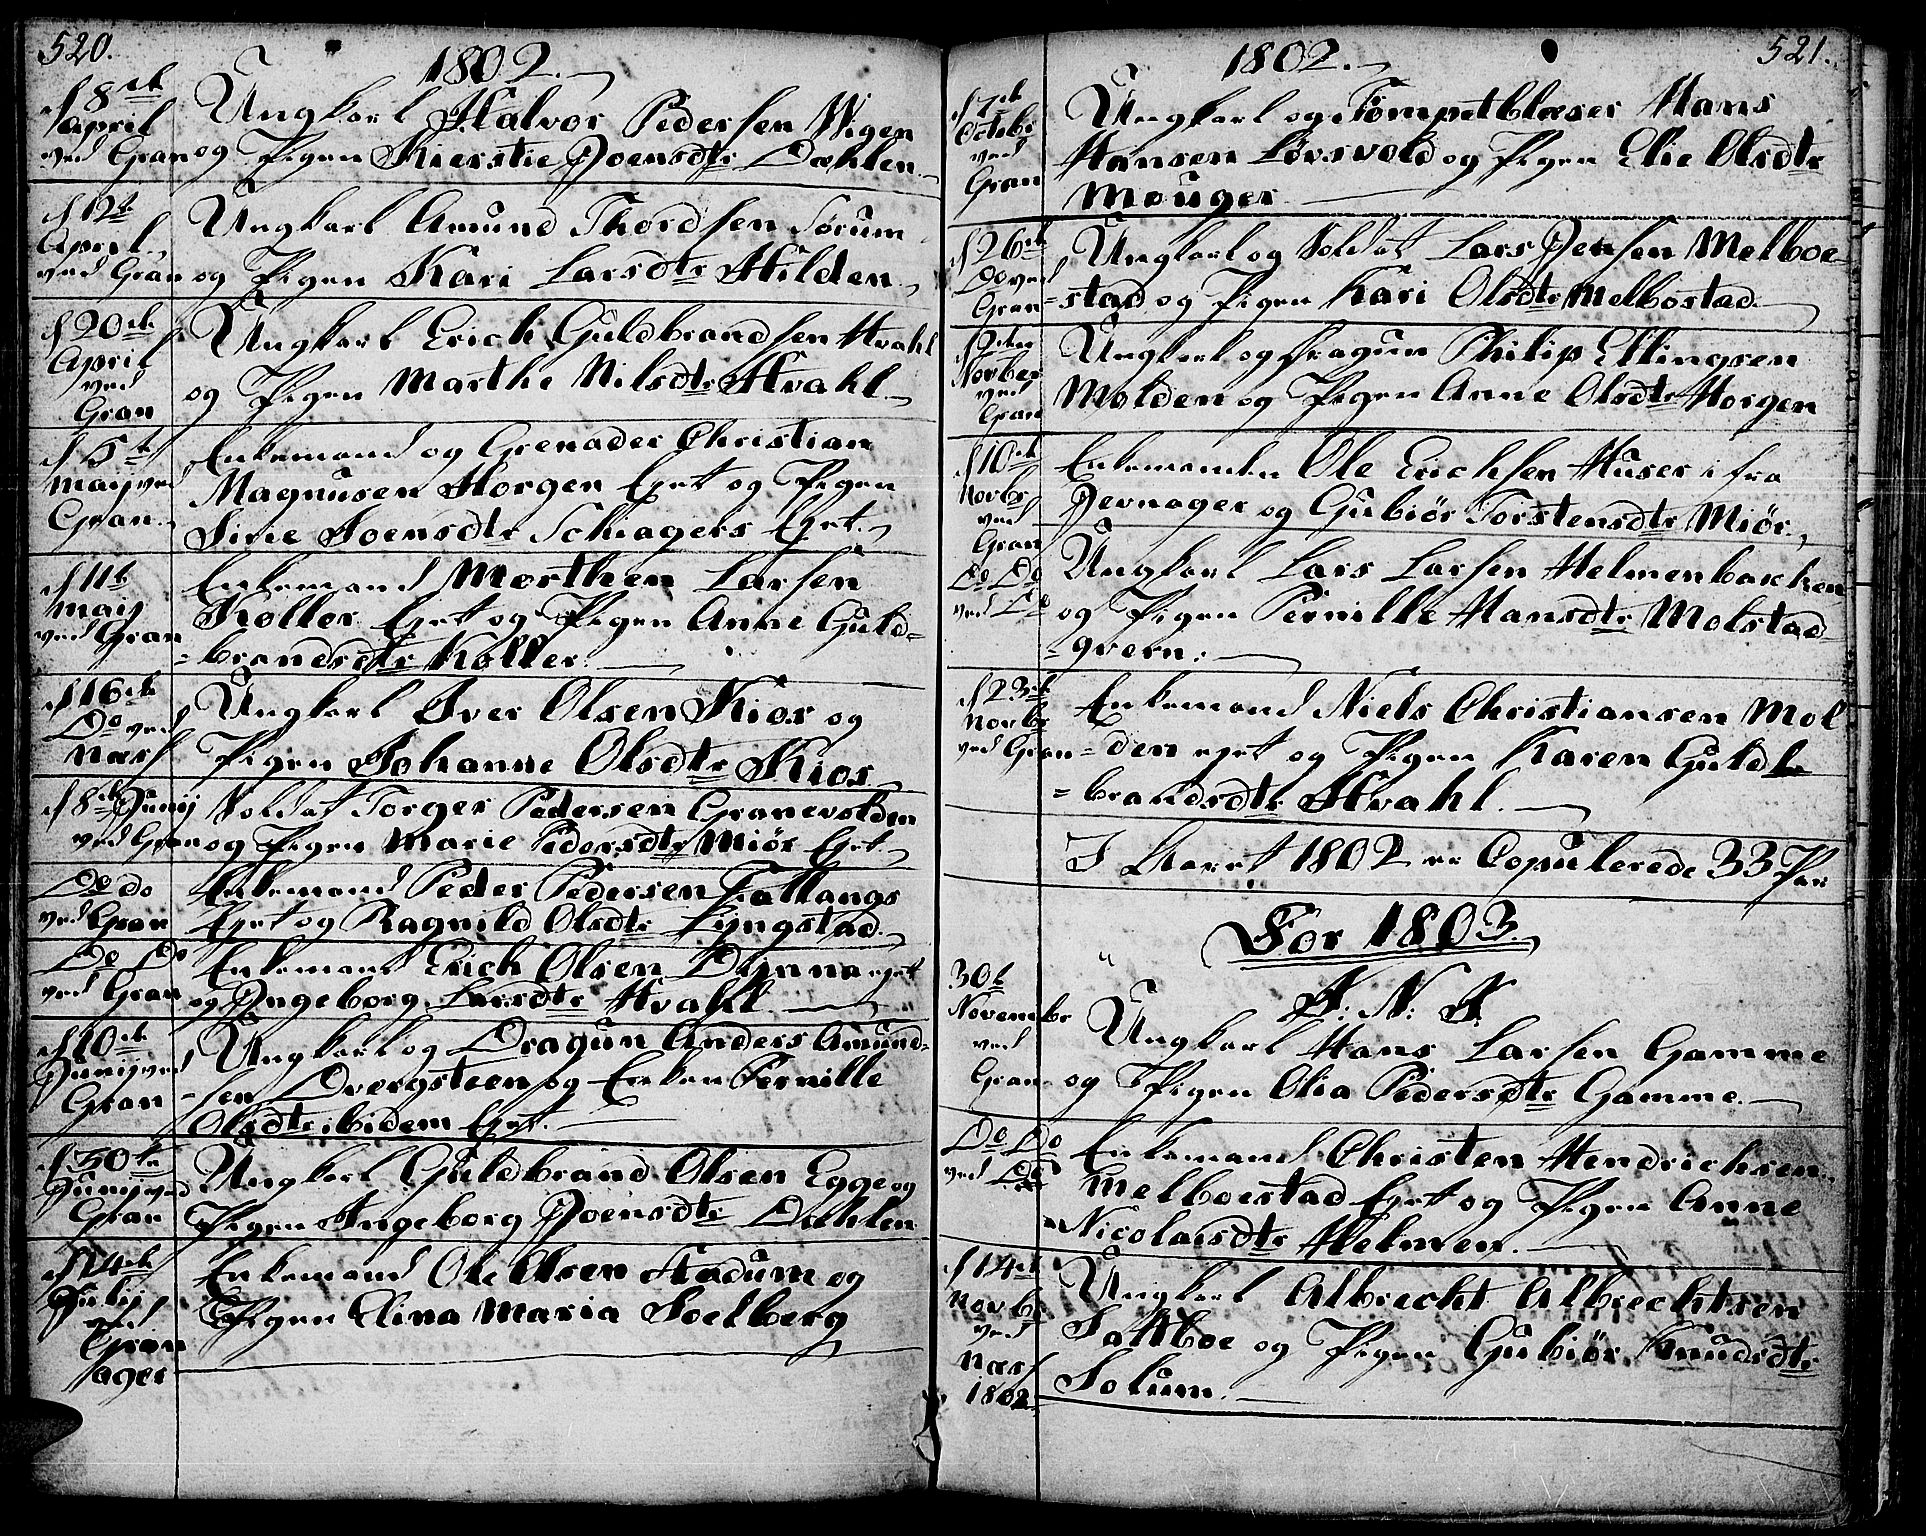 520.
1802.
d 8de
april
ved Gran
Ungkarl Halvor Pedersen Wigen
og Pigen Kierstie Joensdtr Dæhlen
d 12te
April
ved Gran
Ungkarl Amund Thordsen Sørum
og Pigen Kari Larsdtr Hilden
d 20de
April
ved
Gran
Ungkarl Erich Guldbrandsen Hvahl
og Pigen Marthe Nilsdtr Hvahl
d 5te
may ved
Gran
Enkemand og Grenader Christian
Magnusen Horgen Eyet og Pigen
Sirie Joensdtr Schiagers Eyet
d 11te
maij
ved Gran
Enkemand Morthen Larsen
Koller Eyet og Pigen Anne Guld-
brandsdtr Koller
d 16de
Do ved
næs
Ungkarl Iver Olsen Kios og
Pigen Johanne Olsdtr Kios
d 8de Junij
ved Gran
Soldat Torger Pedersen Granevolden
og Pigen Marie Pedersdtr Miør Eyet
Do do
ved Gran
Enkemand Peder Pedersen Tallangs
Eyet og Ragnild Olsdtr Lyngstad
Do Do
ved Gran
Enkemand Erich Olsen Dynna eyet
og Ingeborg Larsdtr Hvahl
d 10de
Junij ved
Gran
Ungkarl og Dragun Anders Amund-
sen Dvergsteen og Enken Pernille
Olsdtr ibidem Eyet.
d 30te
Junij ved
Gran
Ungkarl Guldbrand Olsen Egge og
Pigen Ingeborg Joensdtr Dæhlen
d 14de
Julij
ved
Gran
ager
Enkemand Ole Olsen Hadum og
Pigen Elina Maria Soelberg
1802.
521.
d 7de
Octobr
ved
Gran
Ungkarl og Trompetblæser Hans
Hansen Lørsvold og Pigen Elie Olsdtr
Mouger
d 26de
Do ved
Gran
Ungkarl og Soldat Lars Jensen Melboe-
stad og Pigen Kari Olsdtr Melbostad
d 2den
Novber
ved
Gran
Ungkarl og Dragun Philip Ellingsen
Molden og Pigen Anne Olsdtr Horgen
d 10de
Novbr
ved
Gran
Enkemanden Ole Erichsen Huser i fra
Jevnager og Gubiør Torstensdtr Miør
Do Do
ved Do
Ungkarl Lars Larsen Helmenbacken
og Pigen Pernille Hansdtr Molstad-
qvern.
d 23de
Novbr
ved Gran
Enkemand Niels Christiansen Mol
-den eyet og Pigen Karen Guld
-brandsdtr Hvahl
I Aaret 1802 er Copulerede 33 Par
For 1803
I. N. I.
30te
Novembr
ved
Gran
Ungkarl Hans Larsen Gamme
og Pigen Olia Pedersdtr Gamme.
Do Do
ved Do
Enkemand Christen Hendrichsen
Melboestad Eyet og Pigen Anne
Nicolaisdtr Helmen.
d 14de
Novbr
ved
Næs
1802
Ungkarl Albrecht Albrechtsen
Sattboe og Pigen Gubiør Knudsdtr
Solum.